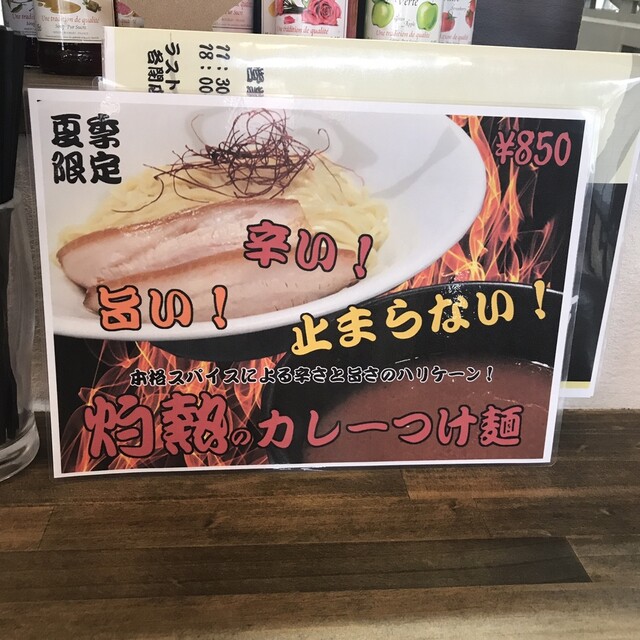 Une tradition de qualité
Une tradition de qualité
Une tradition de qualité
Une tradition de qualité
11:30
18:00
夏季
限定
¥850
辛い!
旨い!
止まらない!
本格スパイスによる辛さと旨さのハリケーン!
灼熱のカレーつけ麺